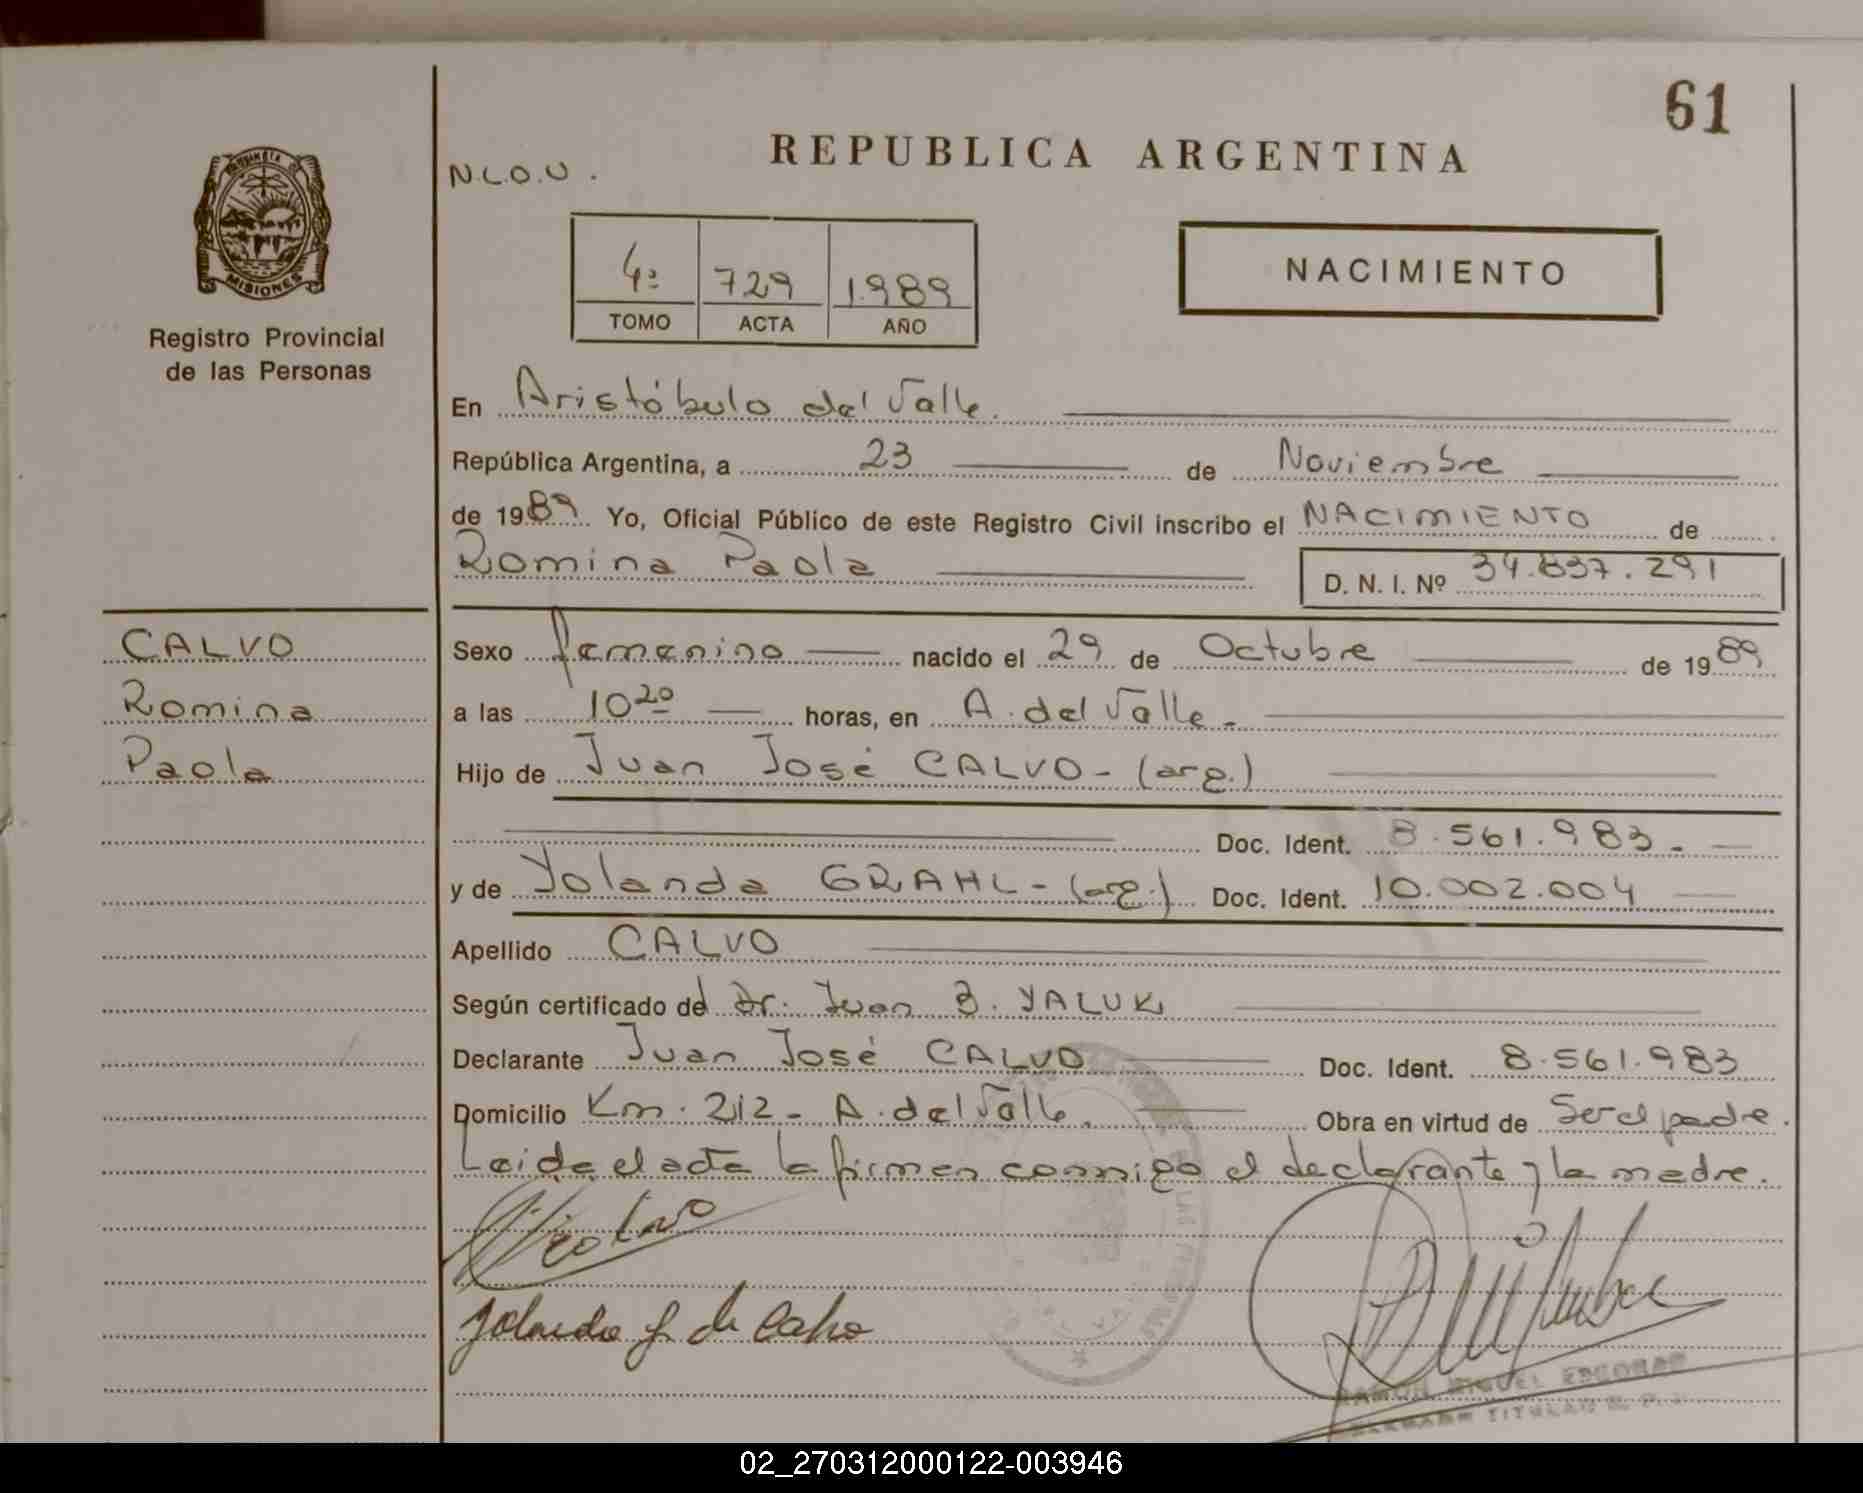 61
REPUBLICA ARGENTINA
N.L.O.U.
PROVINCIA
MISIONES
Registro Provincial
de las Personas
4º 729 1989
TOMO ACTA AÑO
NACIMIENTO
En Aristóbulo del Valle.
República Argentina, a 23 de Noviembre
de 1989 Yo, Oficial Público de este Registro Civil inscribo el NACIMIENTO de
Romina Paola D. N. I. Nº 34.837.291
CALVO
Romina
Paola
Sexo femenino nacido el 29 de Octubre de 1989
a las 10 20 horas, en A. del Valle.-
Hijo de Juan José CALVO - (arg.)
Doc. Ident. 8.561.983.-
y de Yolanda GRAHL - (arg.) Doc. Ident. 10.002.004
Apellido CALVO
Según certificado del Dr. Juan B. YALUK
Declarante Juan José CALVO Doc. Ident. 8.561.983
Domicilio Km. 212 - A. del Valle. Obra en virtud de Ser el padre.
Leída el acta la firman conmigo el declarante y la madre.
Yolanda G. de Calvo
RAMON MIGUEL ESCOBAR
TITULAR
02_270312000122-003946